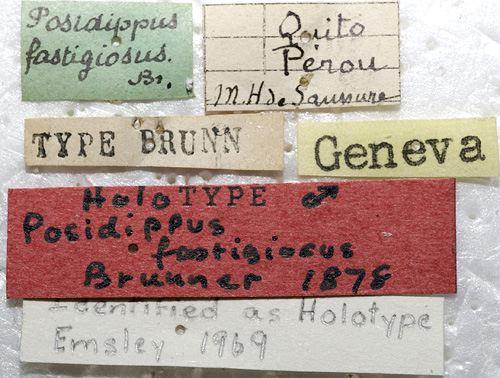 Posidippus
fastigiosus.
Br.
Quito
Pérou
M. H de Saussure
TYPE BRUNN
Geneva
Holo TYPE ♂
Posidippus
fastigiosus
Brunner 1878
Identified as Holotype
Emsley 1969